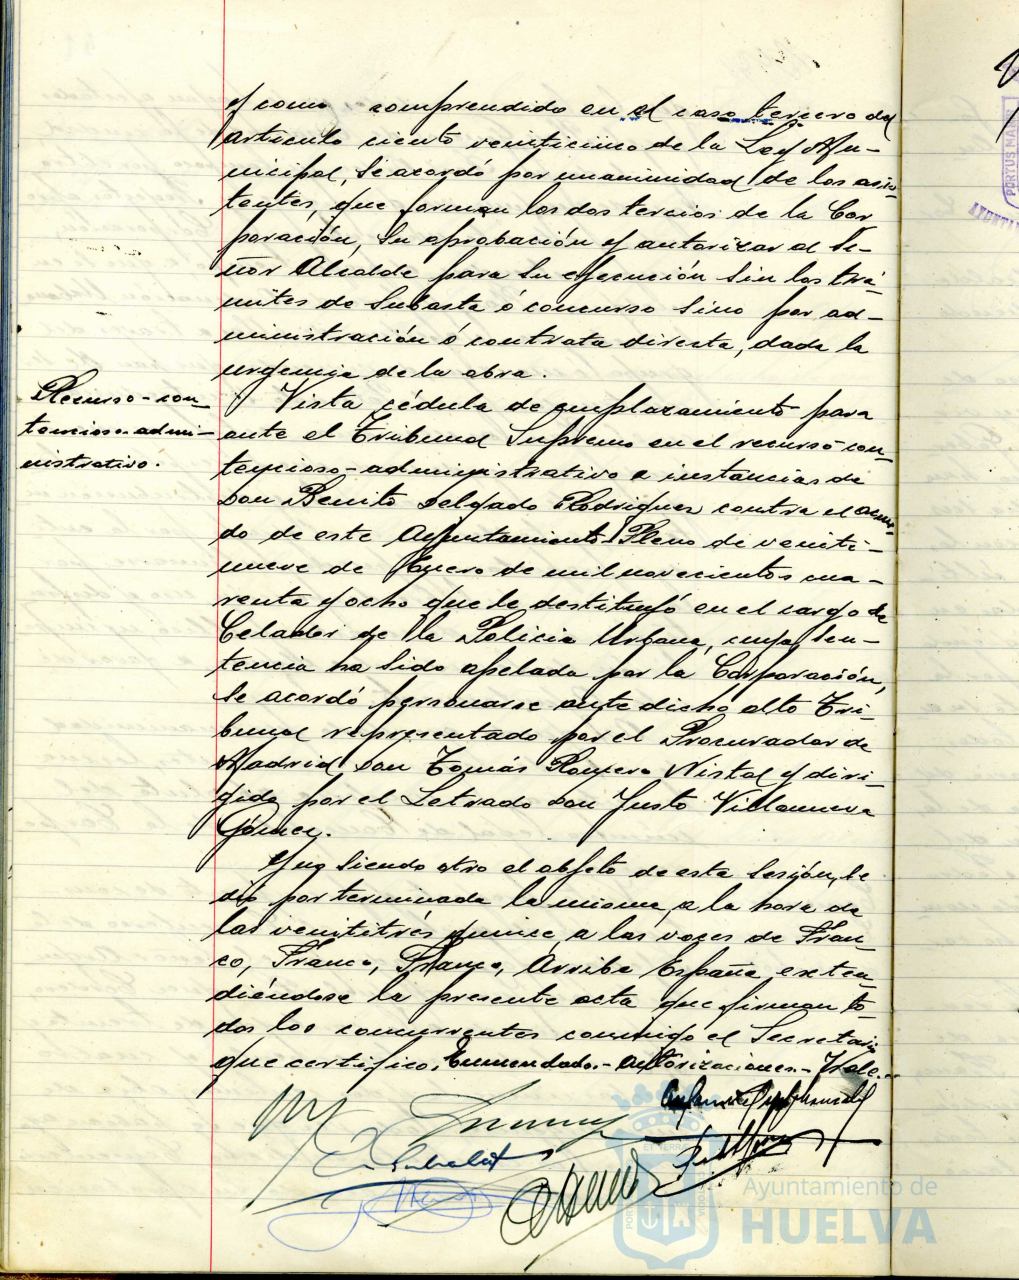 y como comprendido en el caso tercero del
artículo ciento veinticinco de la Ley Mu-
nicipal, se acordó por unanimidad de los asis-
tentes, que forman los dos tercios de la Cor
poración, su aprobación y autorizar al Se-
ñor Alcalde para su ejecución sin los trá-
mites de subasta ó concurso sino por ad-
ministración ó contrata directa, dada la
urgencia de la obra.
Recurso-con-
tencioso-admi-
nistrativo.
Vista cédula de emplazamiento para
ante el Tribunal Supremo en el recurso con-
tencioso-administrativo a instancias de
Don Benito Delgado Rodriguez contra el acuer-
do de este Ayuntamiento Pleno de veinti-
nueve de Enero de mil novecientos cua-
renta y ocho que le destituyó en el cargo de
Celador de la Policia Urbana, cuya sen-
tencia ha sido apelada por la Corporación,
se acordó personarse ante dicho alto Tri-
bunal representado por el Procurador de
Madrid Don Tomás Romero Nistal y diri
gido por el Letrado Don Justo Villanueva
Gómez.
Y no siendo otro el objeto de esta sesión, se
dió por terminada la misma, a la hora de
las veintitrés quince, a las voces de Fran-
co, Franco, Franco, Arriba España, exten-
diéndose la presente acta que firman to-
dos los concurrentes conmigo el Secretario
que certifico.- Enmendado.- Autorizaciones.- Vale.-
Ayuntamiento de
HUELVA
PORTUS MARIS